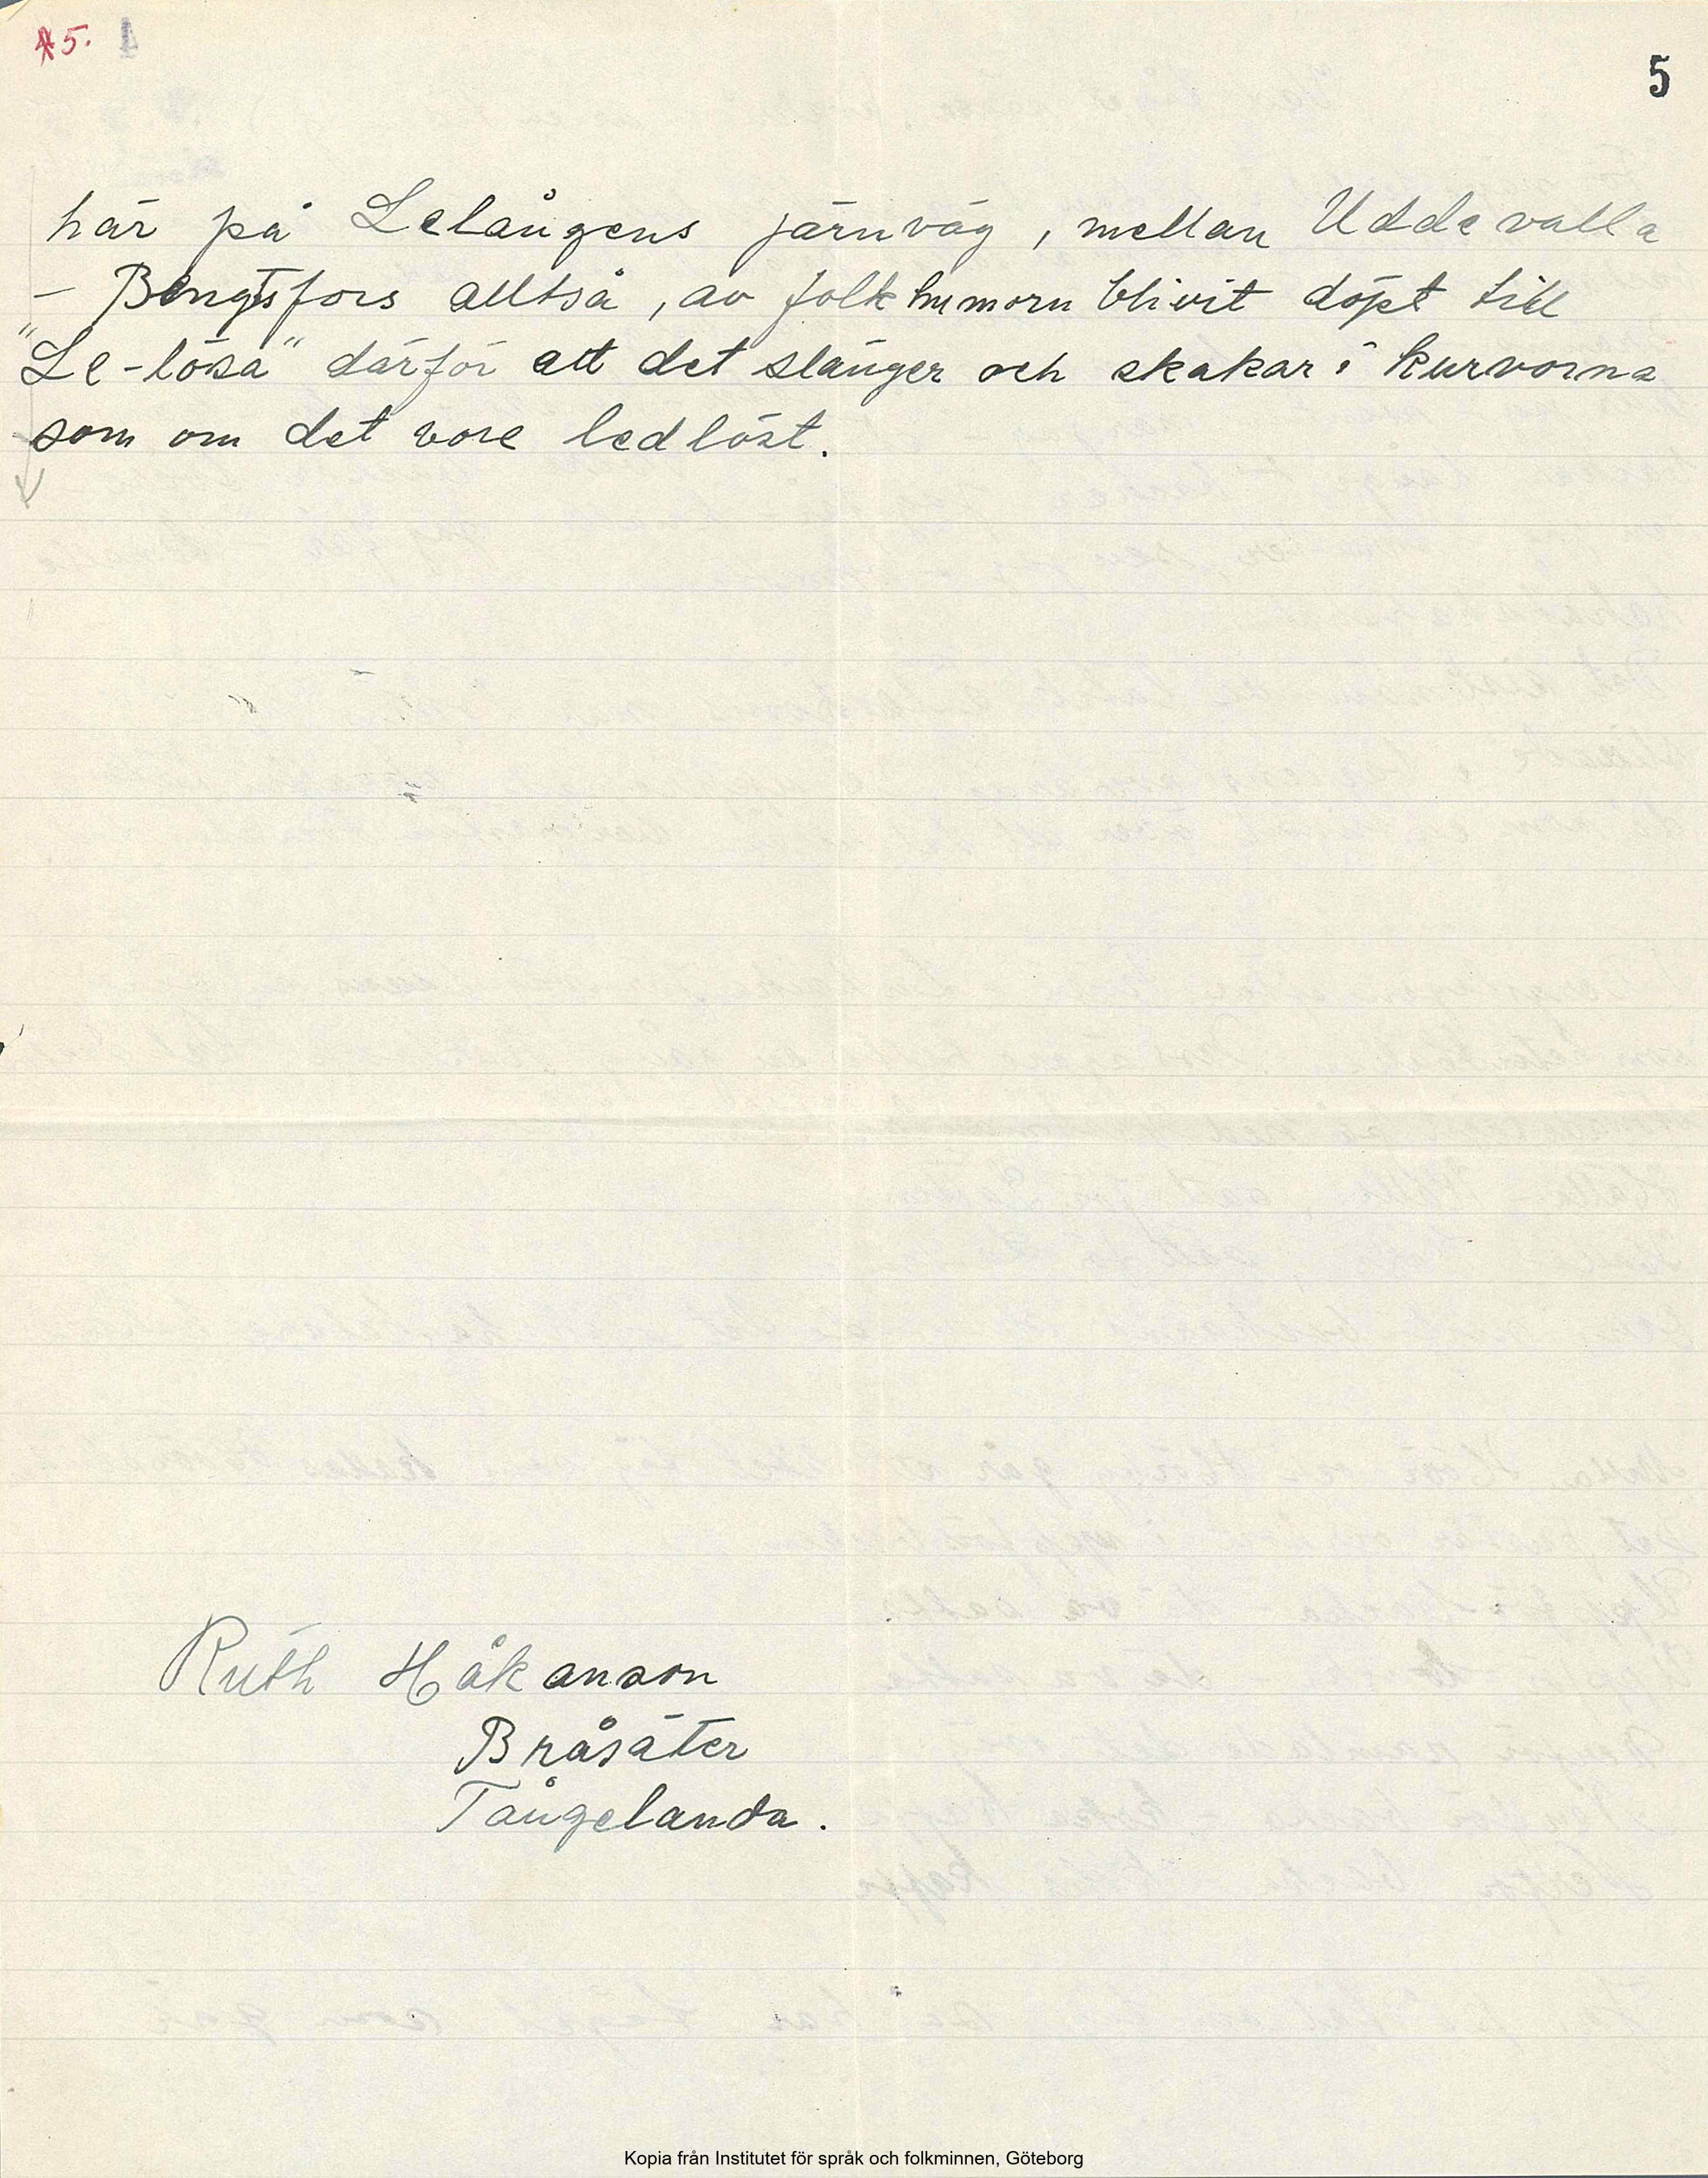 5.
5
här på Lelångens järnväg, mellan Uddevalla
- Bengtsfors alltså, av folkhumorn blivit döpt till
"Le-lösa" därför att det slänger och skakar i kurvorna
som om det vore ledlöst.
Ruth Håkanson
Bråsäter
Tångelanda.
Kopia från Institutet för språk och folkminnen, Göteborg